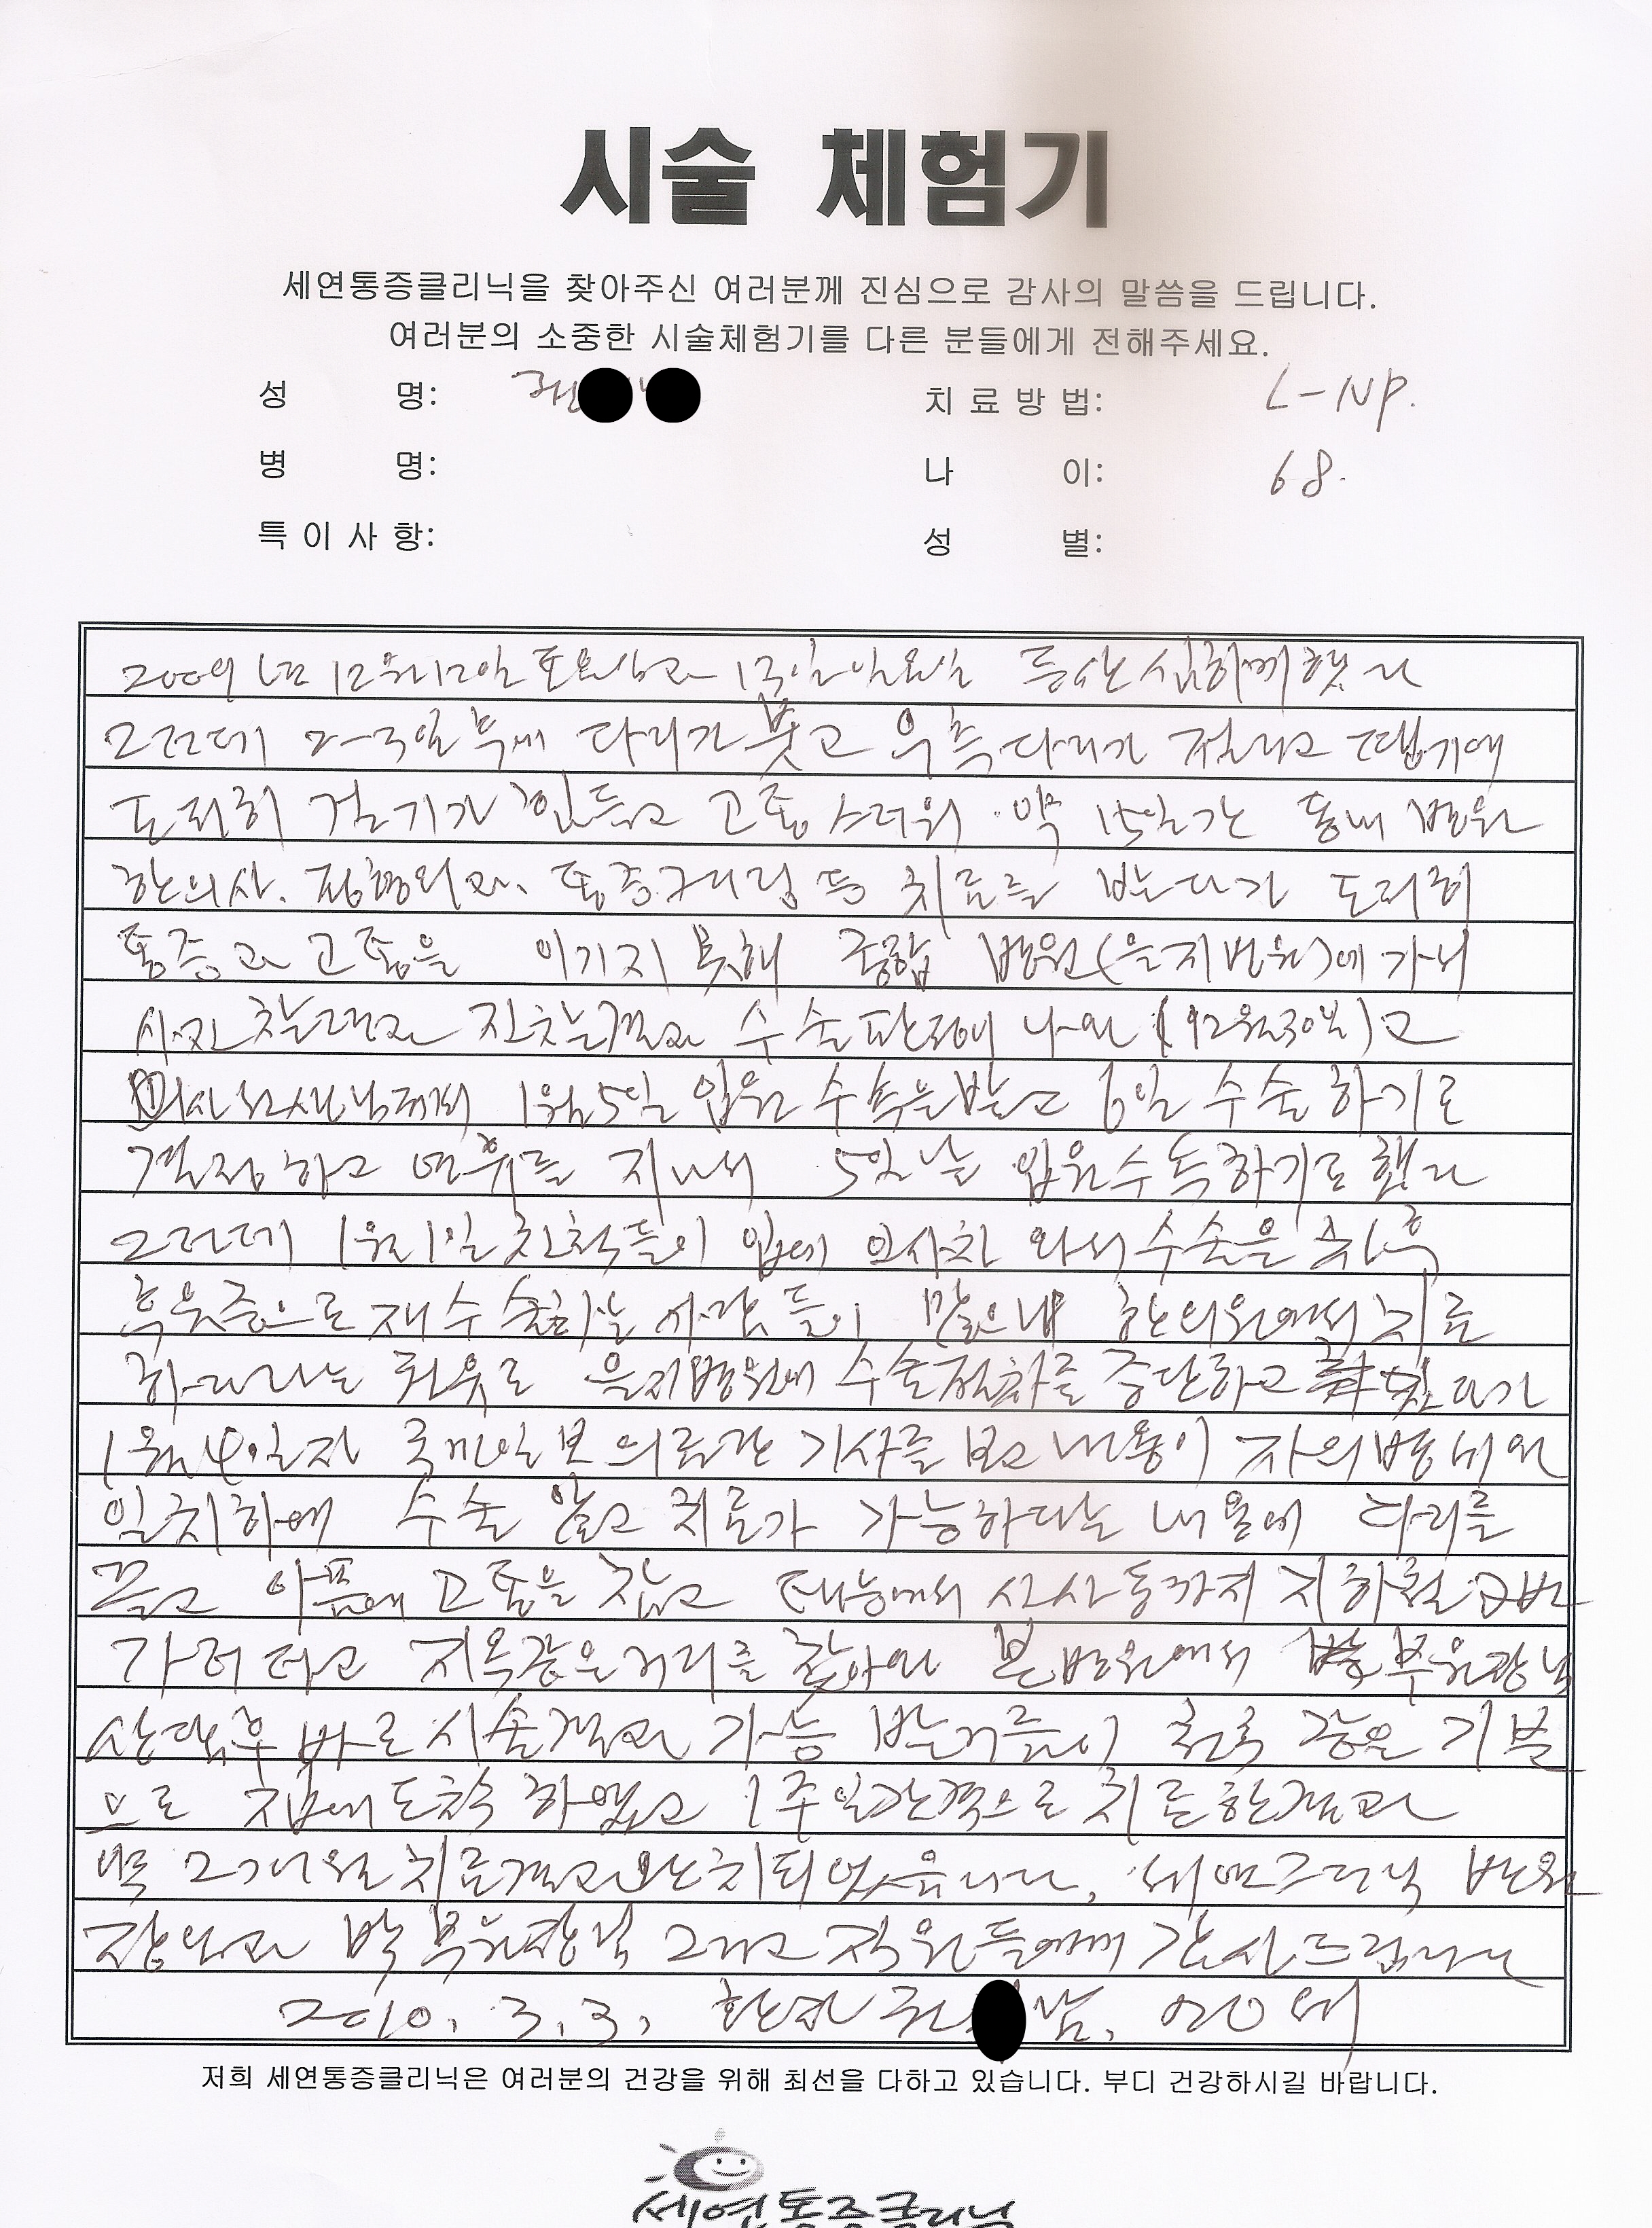 시술 체험기
세연통증클리닉을 찾아주신 여러분께 진심으로 감사의 말씀을 드립니다.
여러분의 소중한 시술체험기를 다른 분들에게 전해주세요.
성 명: 치료방법: L-NP.
병 명: 나 이: 68.
특이사항: 성 별:
2009년 12월12일 토요일과 13일 일요일 등산 심하게 했다
그런데 2-3일 후에 다리가 붓고 우측다리가 저리고 땡기에
도저히 걷기가 힘들고 고통스러워 약 15일간 동네 병원
한의사. 정형외과. 통증크리닉 등 치료를 받다가 도저히
통증과 고통을 이기지 못해 종합 병원(을지병원)에 가서
사진촬영과 진찰결과 수술판정이 나와 (12월30일)고
의사선생님께서 1월5일 입원 수속을받고 6일 수술하기로
결정하고 연휴를 지나서 5일날 입원수속하기로 했다
그런데 1월1일 친척들이 집에 인사차 와서 수술은 추후
후유증으로 재수술하는 사람들이 많으니 한의원에서 치료
하라는 권유로 을지병원에 수술절차를 중단하고 있다가
1월4일자 국민일보 의료란 기사를 보고 내용이 저의병세와
일치하여 수술 않고 치료가 가능하다는 내용에 다리를
끌고 아픔에 고통을 참고 태능에서 신사동까지 지하철 2번
가러타고 지옥같은거리를 찾아와 본병원에서 부원장님
상담후 바로 시술결과 가능 발거름이 천국 같은 기분
으로 집에도착 하였고 1주일간격으로 치료한결과
약 2개월 치료결과완치되었습니다. 세연크리닉 병원
장님과 박부원장님 그리고 직원들에게 감사드립니다
2010. 3. 3, 환자 올림
저희 세연통증클리닉은 여러분의 건강을 위해 최선을 다하고 있습니다. 부디 건강하시길 바랍니다.
세연통증클리닉